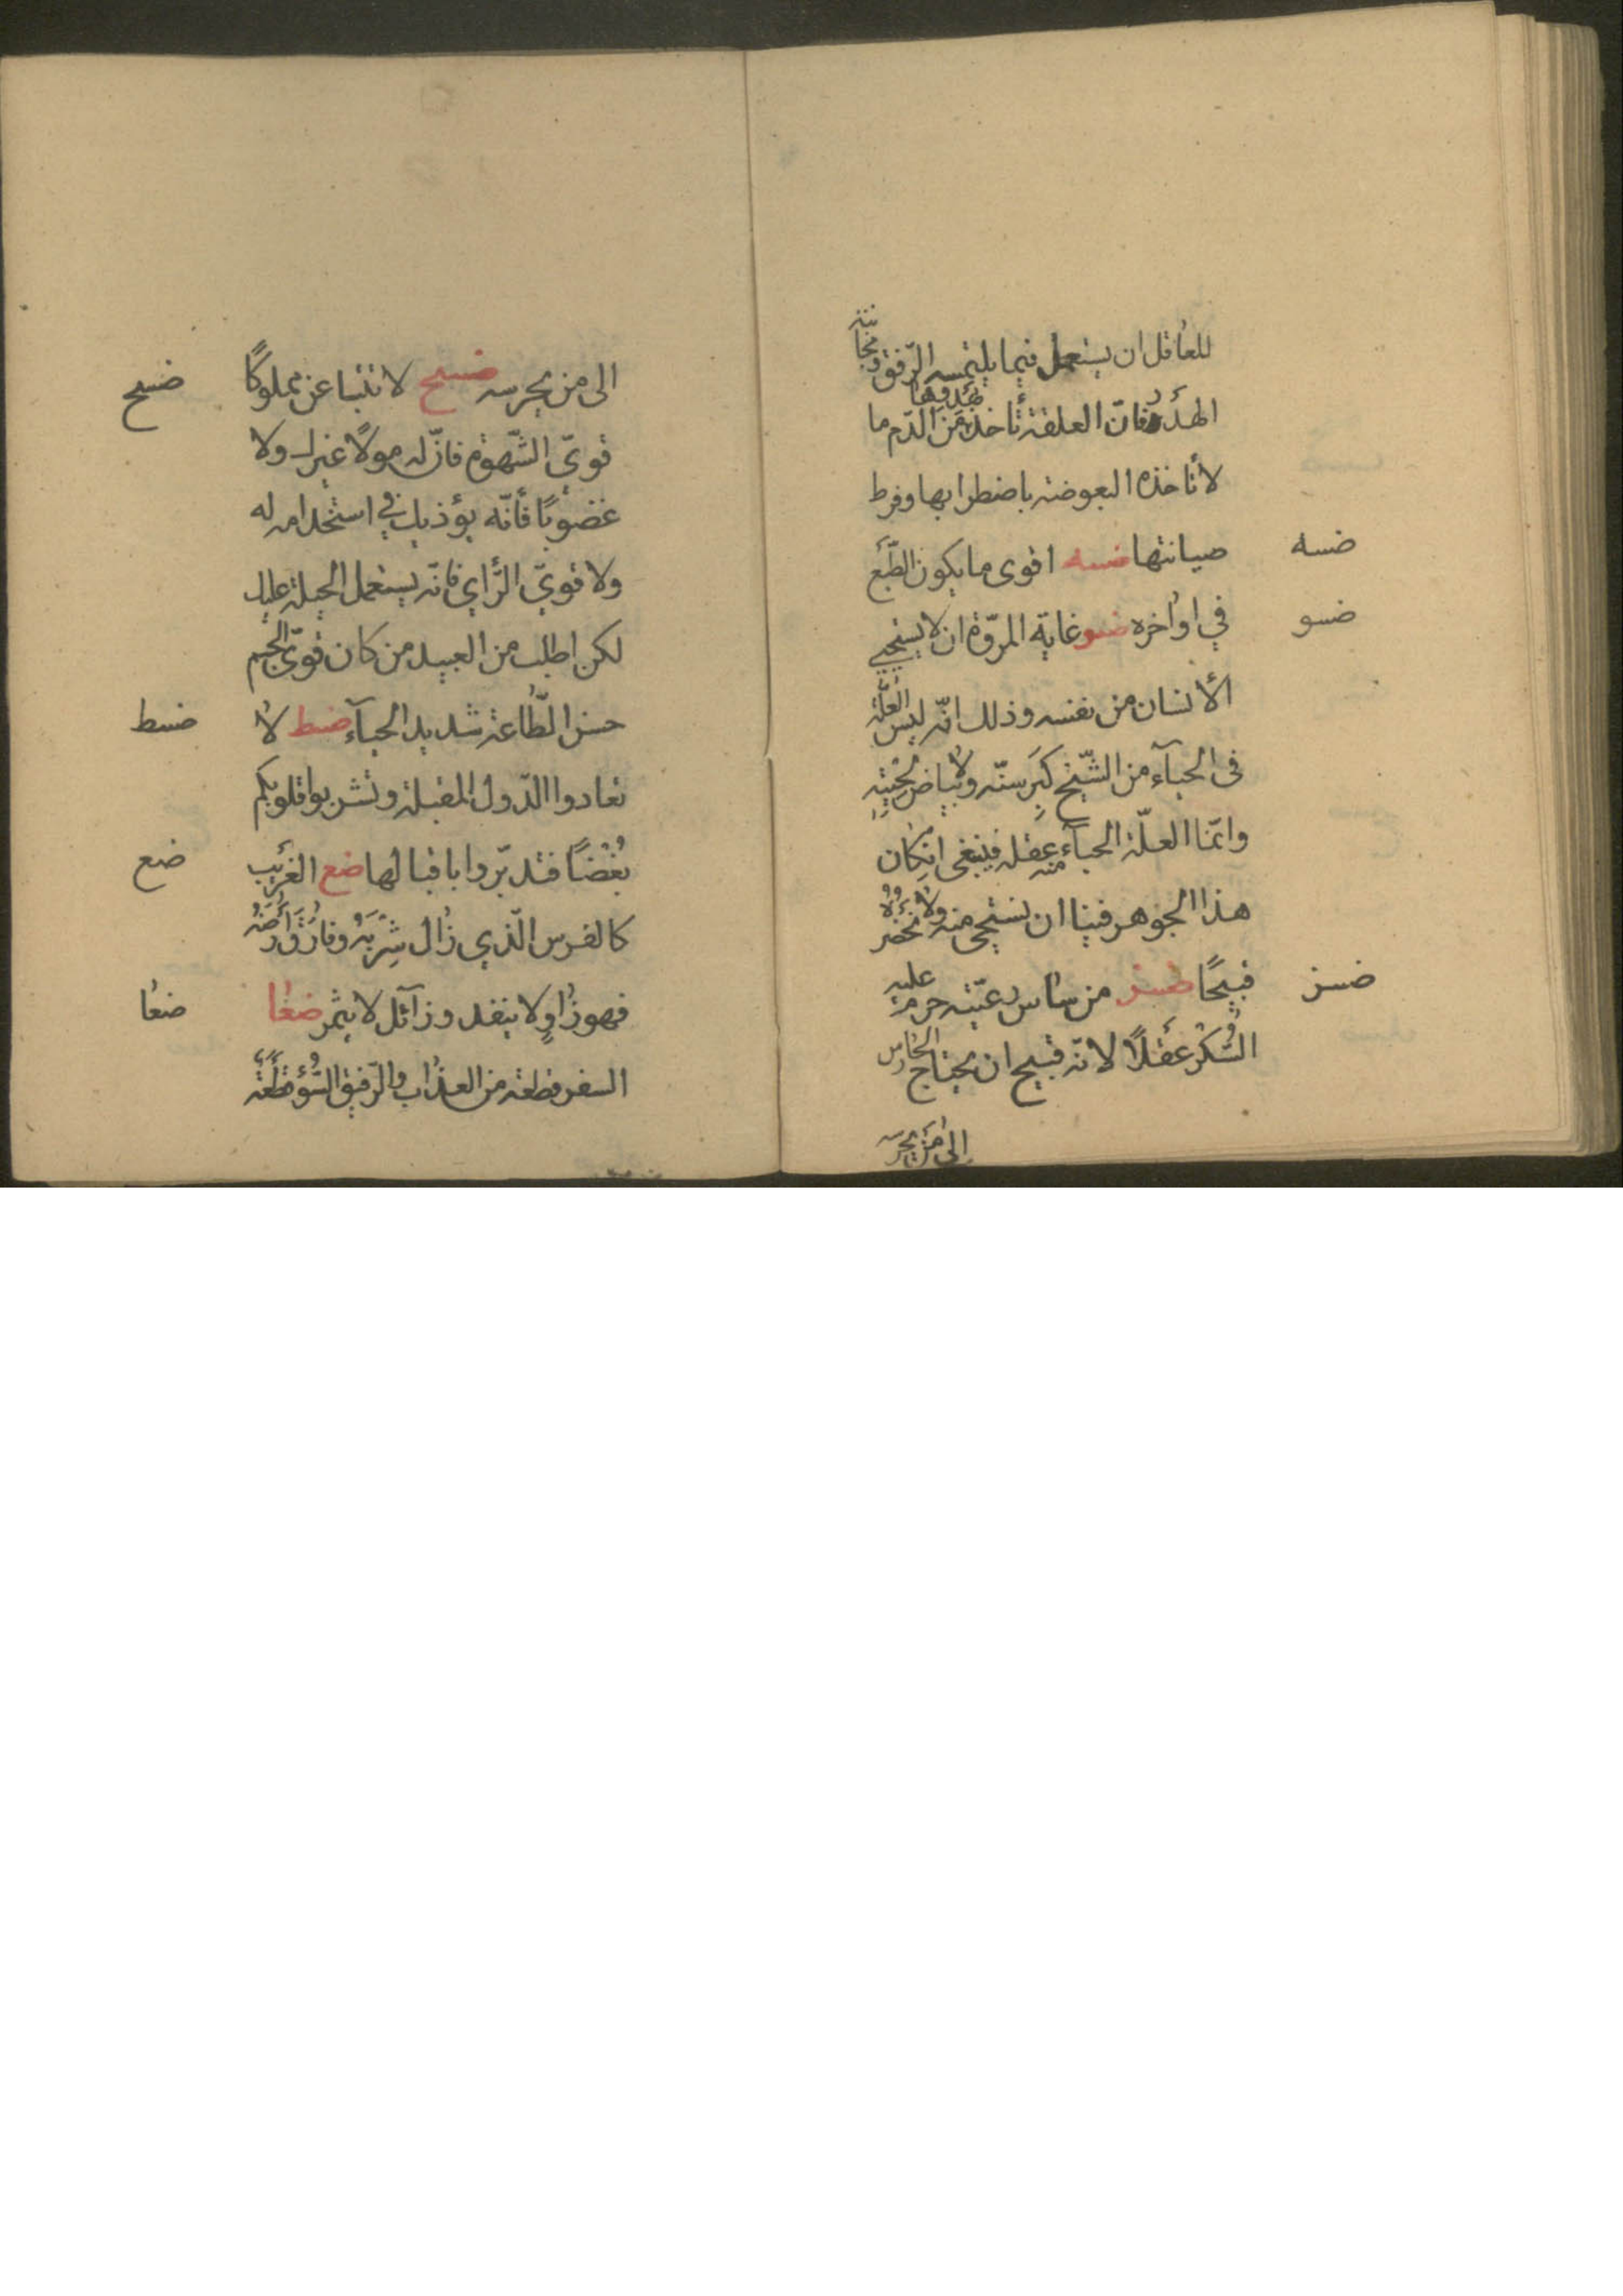 للعاقل ان يستعمل فيما يلتمسه الرّفق ومجانبة
الهذر فانّ العلقة تأخذ بهدوها من الدّم ما
لا تأخذه البعوضة باضطرابها وفرط
ضسه
صيانتها ضسه اقوى ما يكون الطّبع
ضسو
في اواخره ضسو غاية المرّوة ان لا يستحيي
الأنسان من نفسه وذلك انّه ليس العلّة
فى الحيآء من الشّيخ كبر سنّه ولا بياض لحيته
وانّما العلّة الحيآء منه عقله فينبغى ان كان
هذا الجوهر فينا ان نستحيى منه ولا نحضره
ضسز
قبيحًا ضسز من ساس رعيّته حرم عليه
السُّكر عقلًا لانّه قبيح ان يحتاج الحارس
الى من يحرسه
الى من يحرسه ضسح لا تبتاعن مملوكًا
ضسح
قويّ الشّهوة فانّ له مولًا غيرك ولا
غضوبًا فأنّه يؤذيك في استخدامه له
ولا قويّ الرّأي فانّه يستعمل الحيلة عليك
لكن اطلب من العبيد من كان قويّ الجسم
حسن الطّاعة شديد الحيآء ضسط لا
ضسط
تعادوا الدّول المقبلة وتشربوا قلوبكم
بُغْضًا فتدبّروا باقبالها ضع الغريب
ضع
كالفرس الّذي زال شِربَهُ وفارق أرضه
فهو ذاوٍ لا ينفد وزآئل لا يثمر ضعا
ضعا
السفر قطعة من العذاب والرّفيق السّوء قطعة